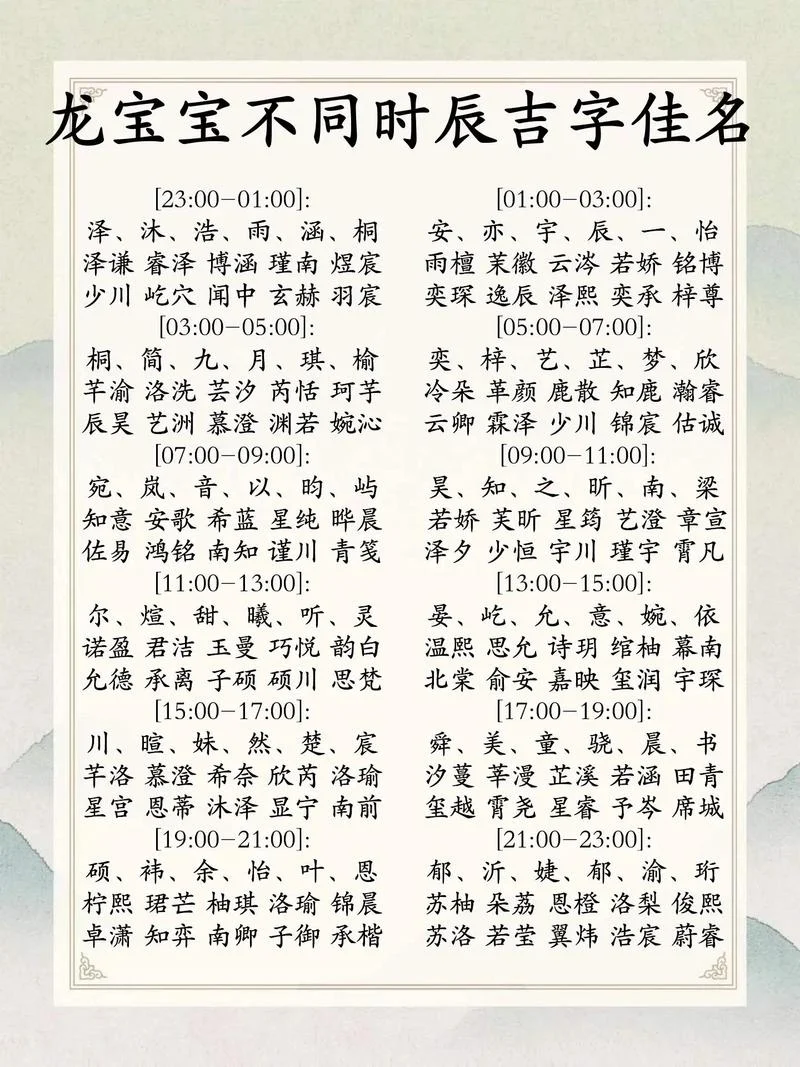 龙宝宝不同时辰吉字佳名
[23:00-01:00]:
泽、沐、浩、雨、涵、桐
泽谦 睿泽 博涵 瑾南 煜宸
少川 屹穴 闻中 玄赫 羽宸
[01:00-03:00]:
安、亦、宇、辰、一、怡
雨檀 茉徽 云涔 若娇 铭博
奕琛 逸辰 泽熙 奕承 梓尊
[03:00-05:00]:
桐、简、九、月、琪、榆
芊渝 洛洗 芸汐 芮恬 珂芋
辰昊 艺洲 慕澄 渊若 婉沁
[05:00-07:00]:
奕、梓、艺、芷、梦、欣
冷朵 革颜 鹿散 知鹿 瀚睿
云卿 霖泽 少川 锦宸 估诚
[07:00-09:00]:
宛、岚、音、以、昀、屿
知意 安歌 希蓝 星纯 晔晨
佐易 鸿铭 南知 谨川 青笺
[09:00-11:00]:
昊、知、之、昕、南、梁
若娇 芙昕 星筠 艺澄 章宣
泽夕 少恒 宇川 瑾宇 霄凡
[11:00-13:00]:
尔、煊、甜、曦、听、灵
诺盈 君洁 玉曼 巧悦 韵白
允德 承离 子硕 硕川 思梵
[13:00-15:00]:
晏、屹、允、意、婉、依
温熙 思允 诗玥 绾柚 幕南
北棠 俞安 嘉映 玺润 宇琛
[15:00-17:00]:
川、暄、妹、然、楚、宸
芊洛 慕澄 希奈 欣芮 洛瑜
星宫 恩蒂 沐泽 显宁 南前
[17:00-19:00]:
舜、美、童、骁、晨、书
汐蔓 莘漫 芷溪 若涵 田青
玺越 霄尧 星睿 予岑 席城
[19:00-21:00]:
硕、祎、余、怡、叶、恩
柠熙 珺芒 柚琪 洛瑜 锦晨
卓潇 知弈 南卿 子御 承楷
[21:00-23:00]:
郁、沂、婕、郁、渝、珩
苏柚 朵荔 恩橙 洛梨 俊熙
苏洛 若莹 翼炜 浩宸 蔚睿